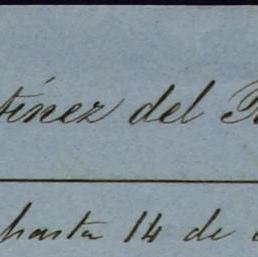 tínez del
hasta 14 de